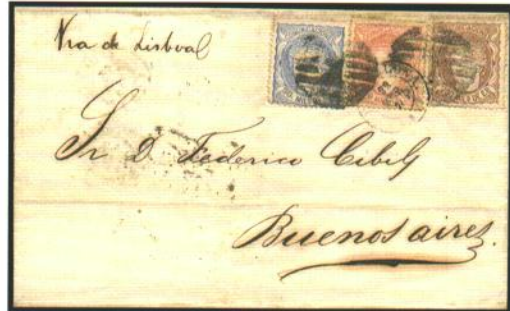 Via de Lisboa
Sr D. Federico Cibils
Buenos aires.